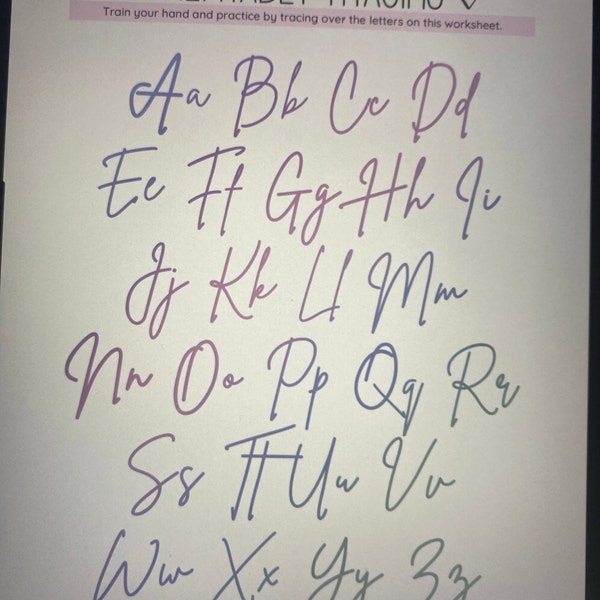 ALPHABET TRACING
Train your hand and practice by tracing over the letters on this worksheet.
Aa Bb Cc Dd
Ee Ff Gg Hh Ii
Jj Kk Ll Mm
Nn Oo Pp Qq Rr
Ss Tt Uu Vv
Ww Xx Yy Zz